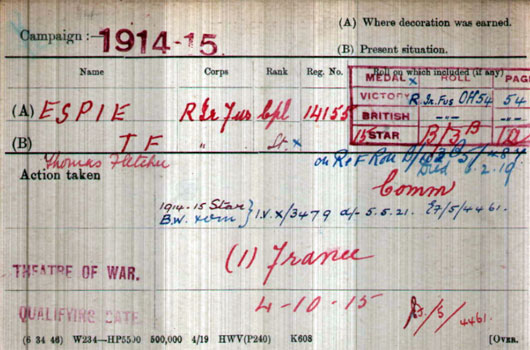 (A) Where decoration was earned.
Campaign :— 1914-15.
(B) Present situation.
Name Corps Rank Reg. No. Roll on which included (if any)
MEDAL x ROLL PAGE
VICTORY R. Ir. Fus OH54 54
BRITISH -"- -"-
15 STAR B/3 B
(A) ESPIE R Ir Fus Cpl 14155
(B) T F " Lt. x
Thomas Fletcher
Action taken
Died 6.2.19
Comm
1914-15 Star
B.W. } I.V. x/3479 d/- 5.5.21. E7/5/4461.
(1) France
THEATRE OF WAR.
QUALIFYING DATE
4-10-15
/5/4461.
(6 34 46) W234—HP5500 500,000 4/19 HWV(P240) K608 [OVER.